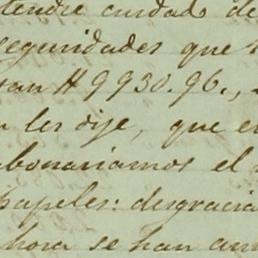 tendré cuidado de
seguridades que
tan # 9930.96.,
les dije, que
abonariamos el
papeles: desgracia
hora se han